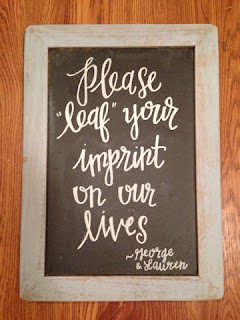 Please
"leaf" your
imprint
on our
lives
~George
& Lauren